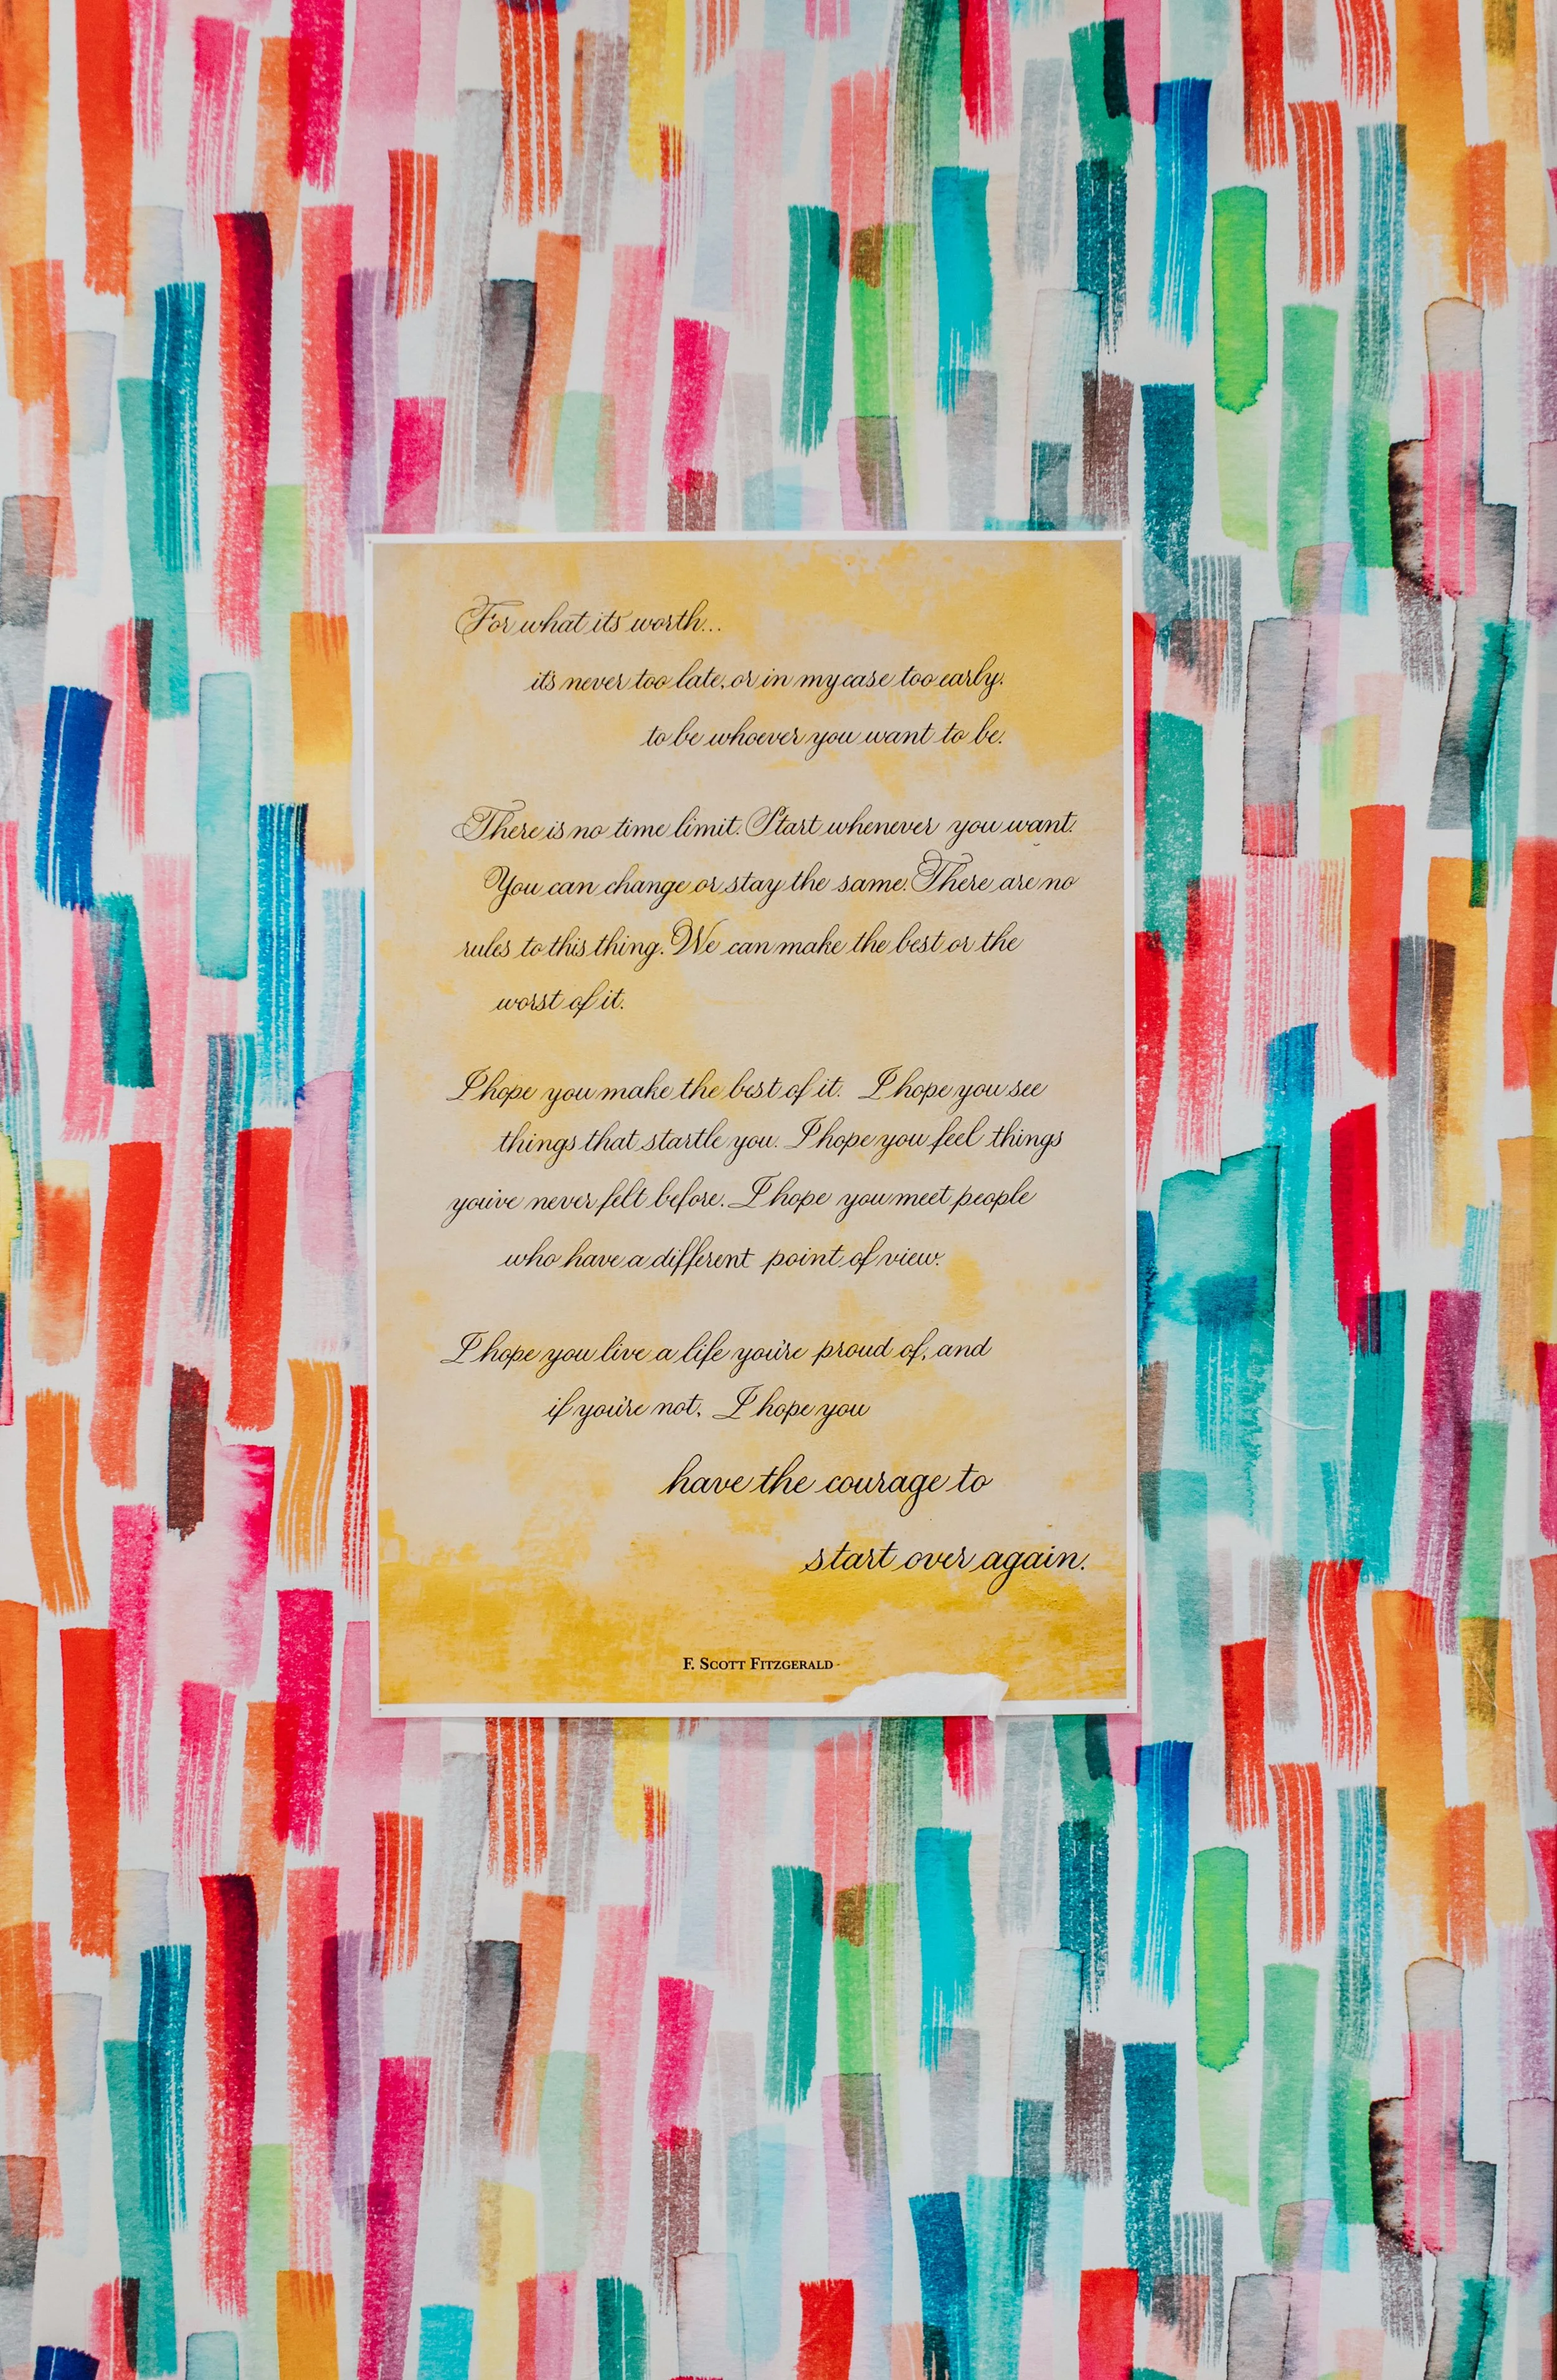 For what its worth...
it's never too late, or in my case too early,
to be whoever you want to be.
There is no time limit. Start whenever you want.
You can change or stay the same. There are no
rules to this thing. We can make the best or the
worst of it.
I hope you make the best of it. I hope you see
things that startle you. I hope you feel things
you've never felt before. I hope you meet people
who have a different point of view.
I hope you live a life you're proud of, and
if you're not, I hope you
have the courage to
start over again.
F. SCOTT FITZGERALD